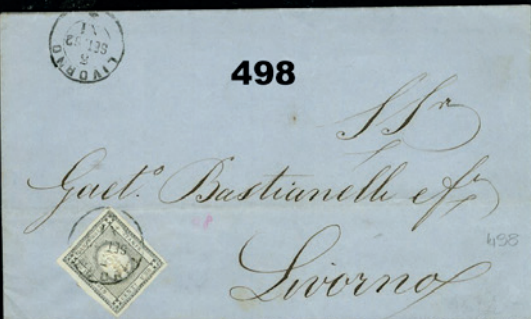 LIVORNO
3
SET 82
498
SSri
Gaet.º Bastianelli e fi
Livorno
498